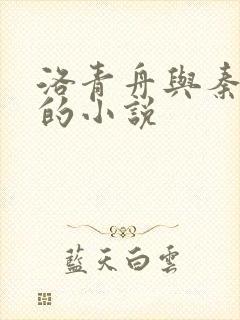 洛青舟與秦
的小說
藍天白雲